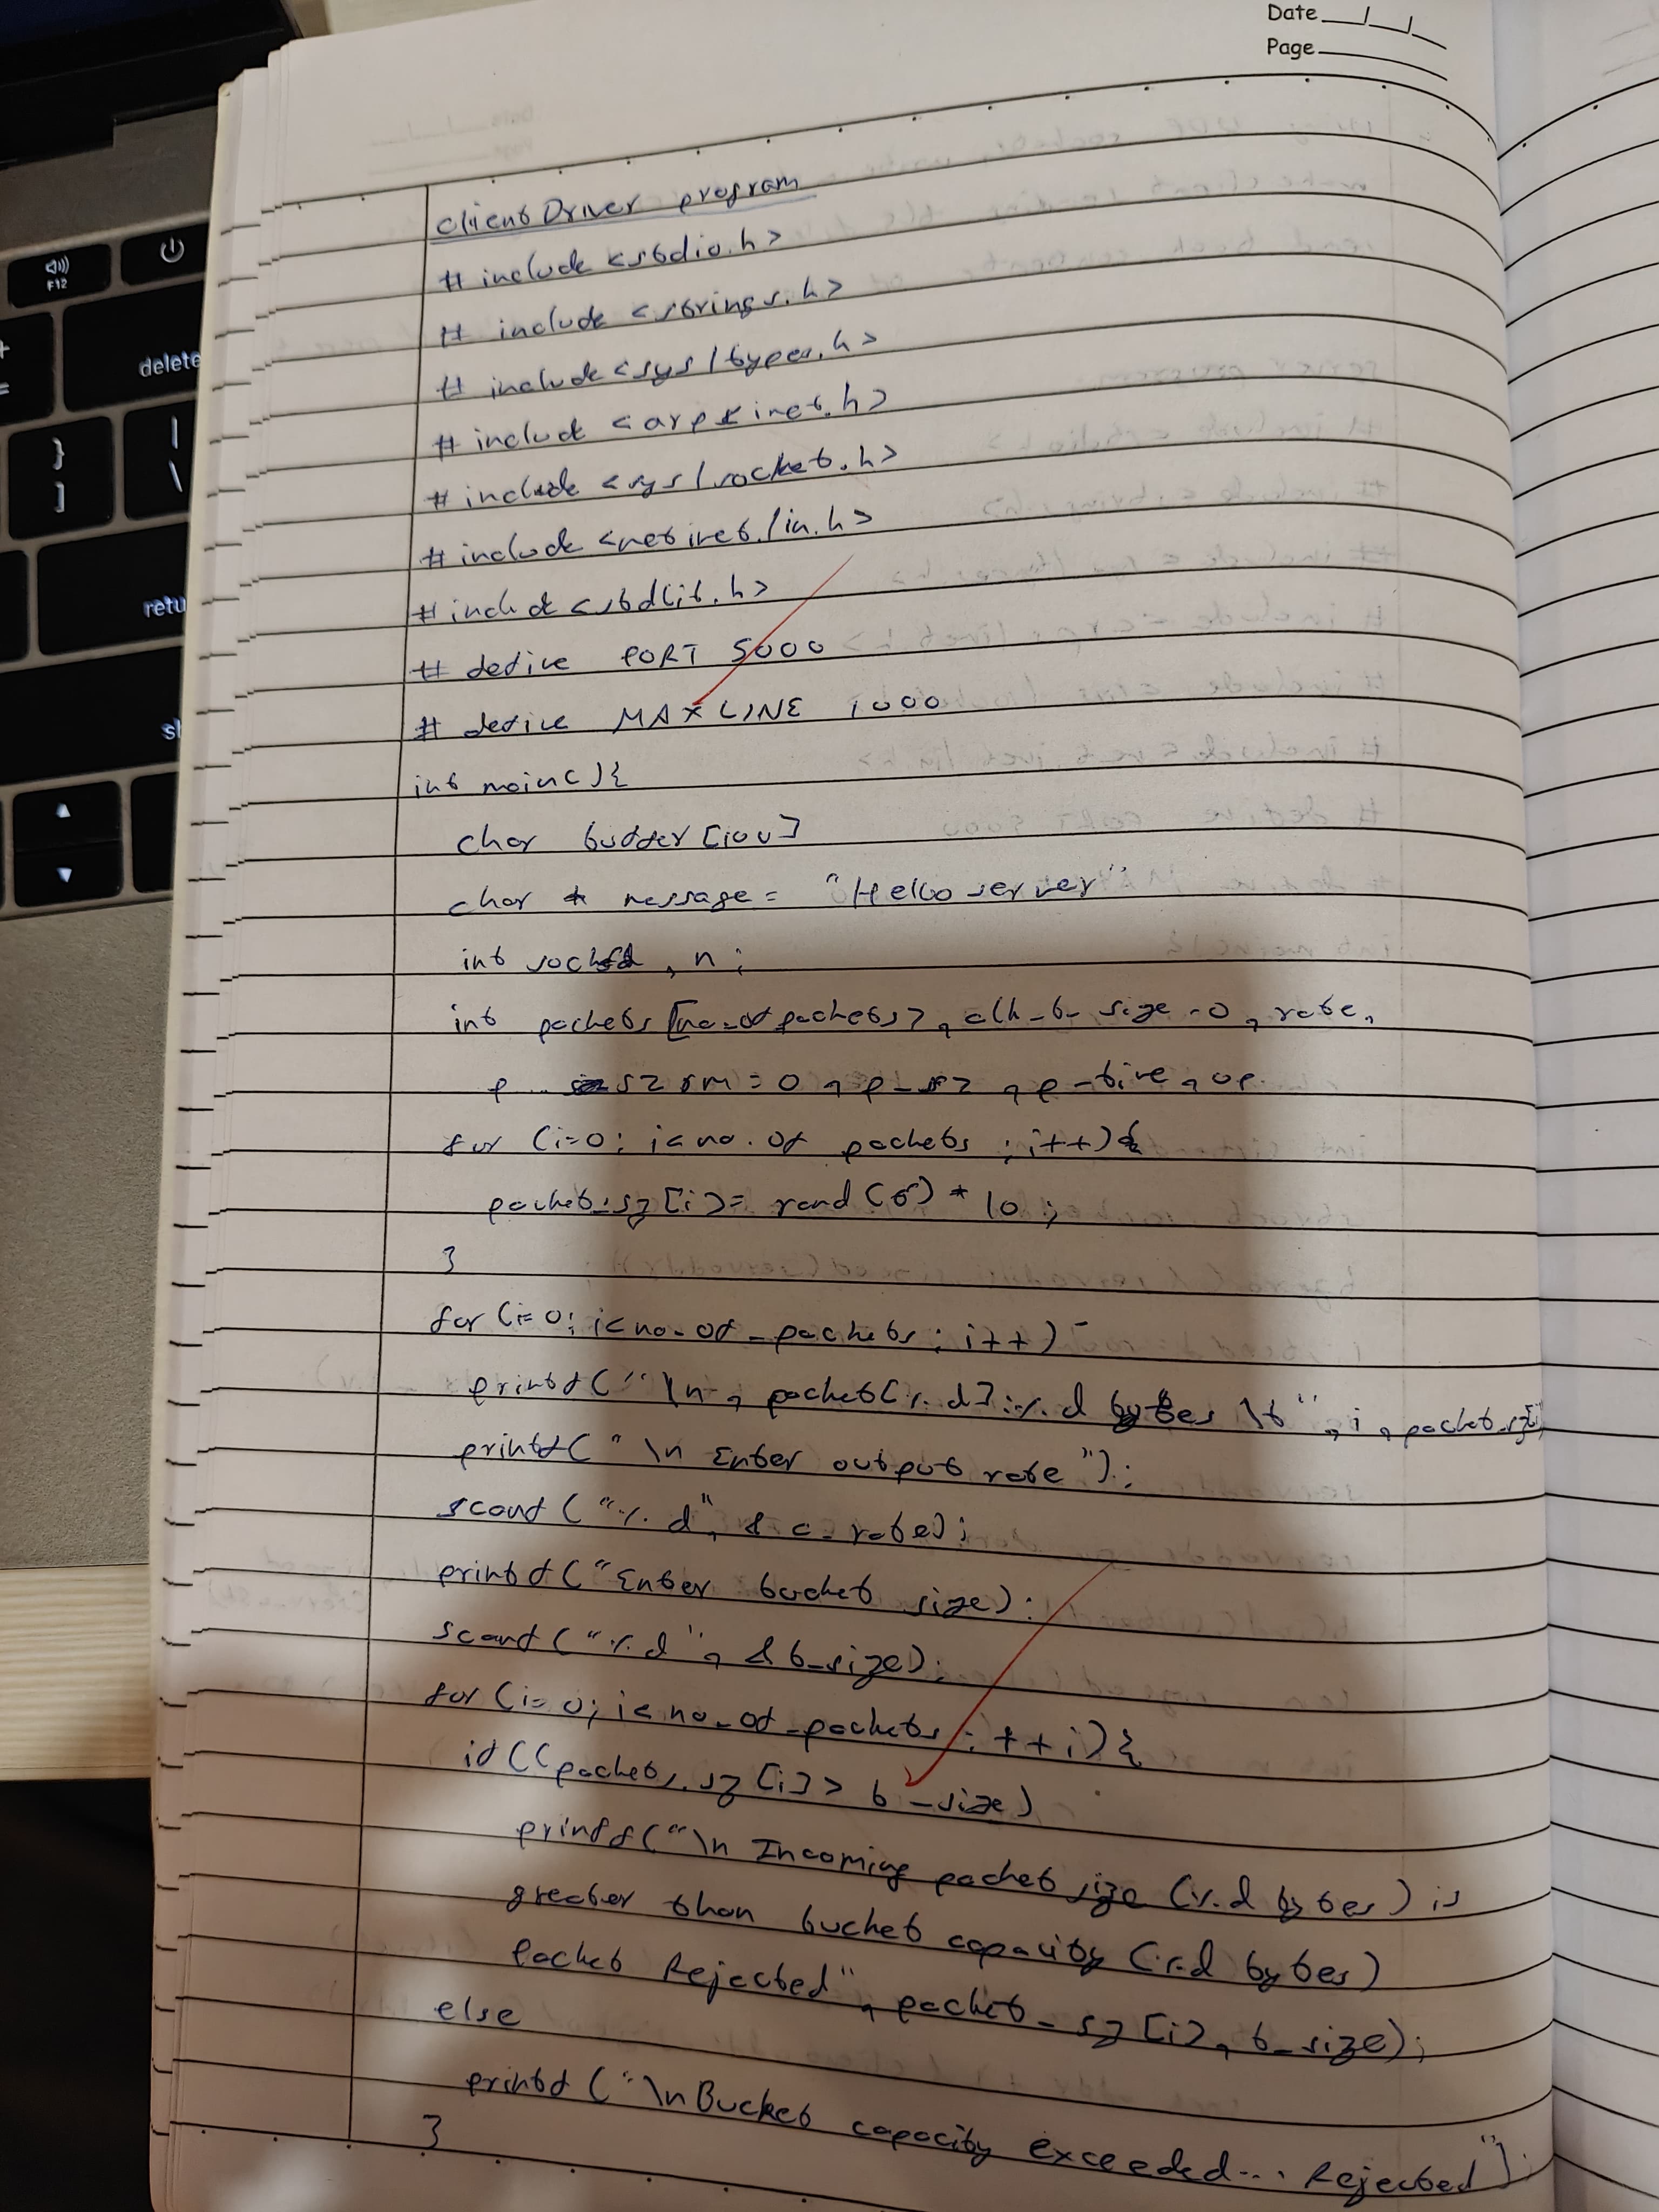 Date __/__/__
Page
Client Driver program
# include <stdio.h>
# include <strings.h>
# include <sys/types.h>
# include <arpa inet.h>
# include <sys/socket.h>
# include <netinet/in.h>
# include <stdlib.h>
# define PORT 5000
# define MAXLINE 1000
int main(){
char buffer[100]
char * message = "Hello server"
int sockfd, n;
int packets[no_of packets], clk_b_ size = 0, rate,
p sz rm = 0, p_sz, p_time, op.
for (i=0; i< no. of packets ; i++){
packet_sz[i]= rand(6) * 10 ;
}
for (i=0; i< no_of_packets ; i++)
printf("\n, packet[%d]:%d bytes \t", i, packet_sz[i]
printf(" \n Enter output rate ");
scanf("%d", & o_rate);
printf("Enter bucket size);
scanf("%d", & b_size);
for (i=0; i< no_of_packets ; ++i){
if((packet_sz[i]> b_size)
printf("\n Incoming packet size (%d bytes) is
greater than bucket capacity (%d bytes)
Packet Rejected", packet_sz[i], b_size);
else
printf("\nBucket capacity exceeded... Rejected");
}
F12
delete
}
]
|
\
retu
sh
+
=